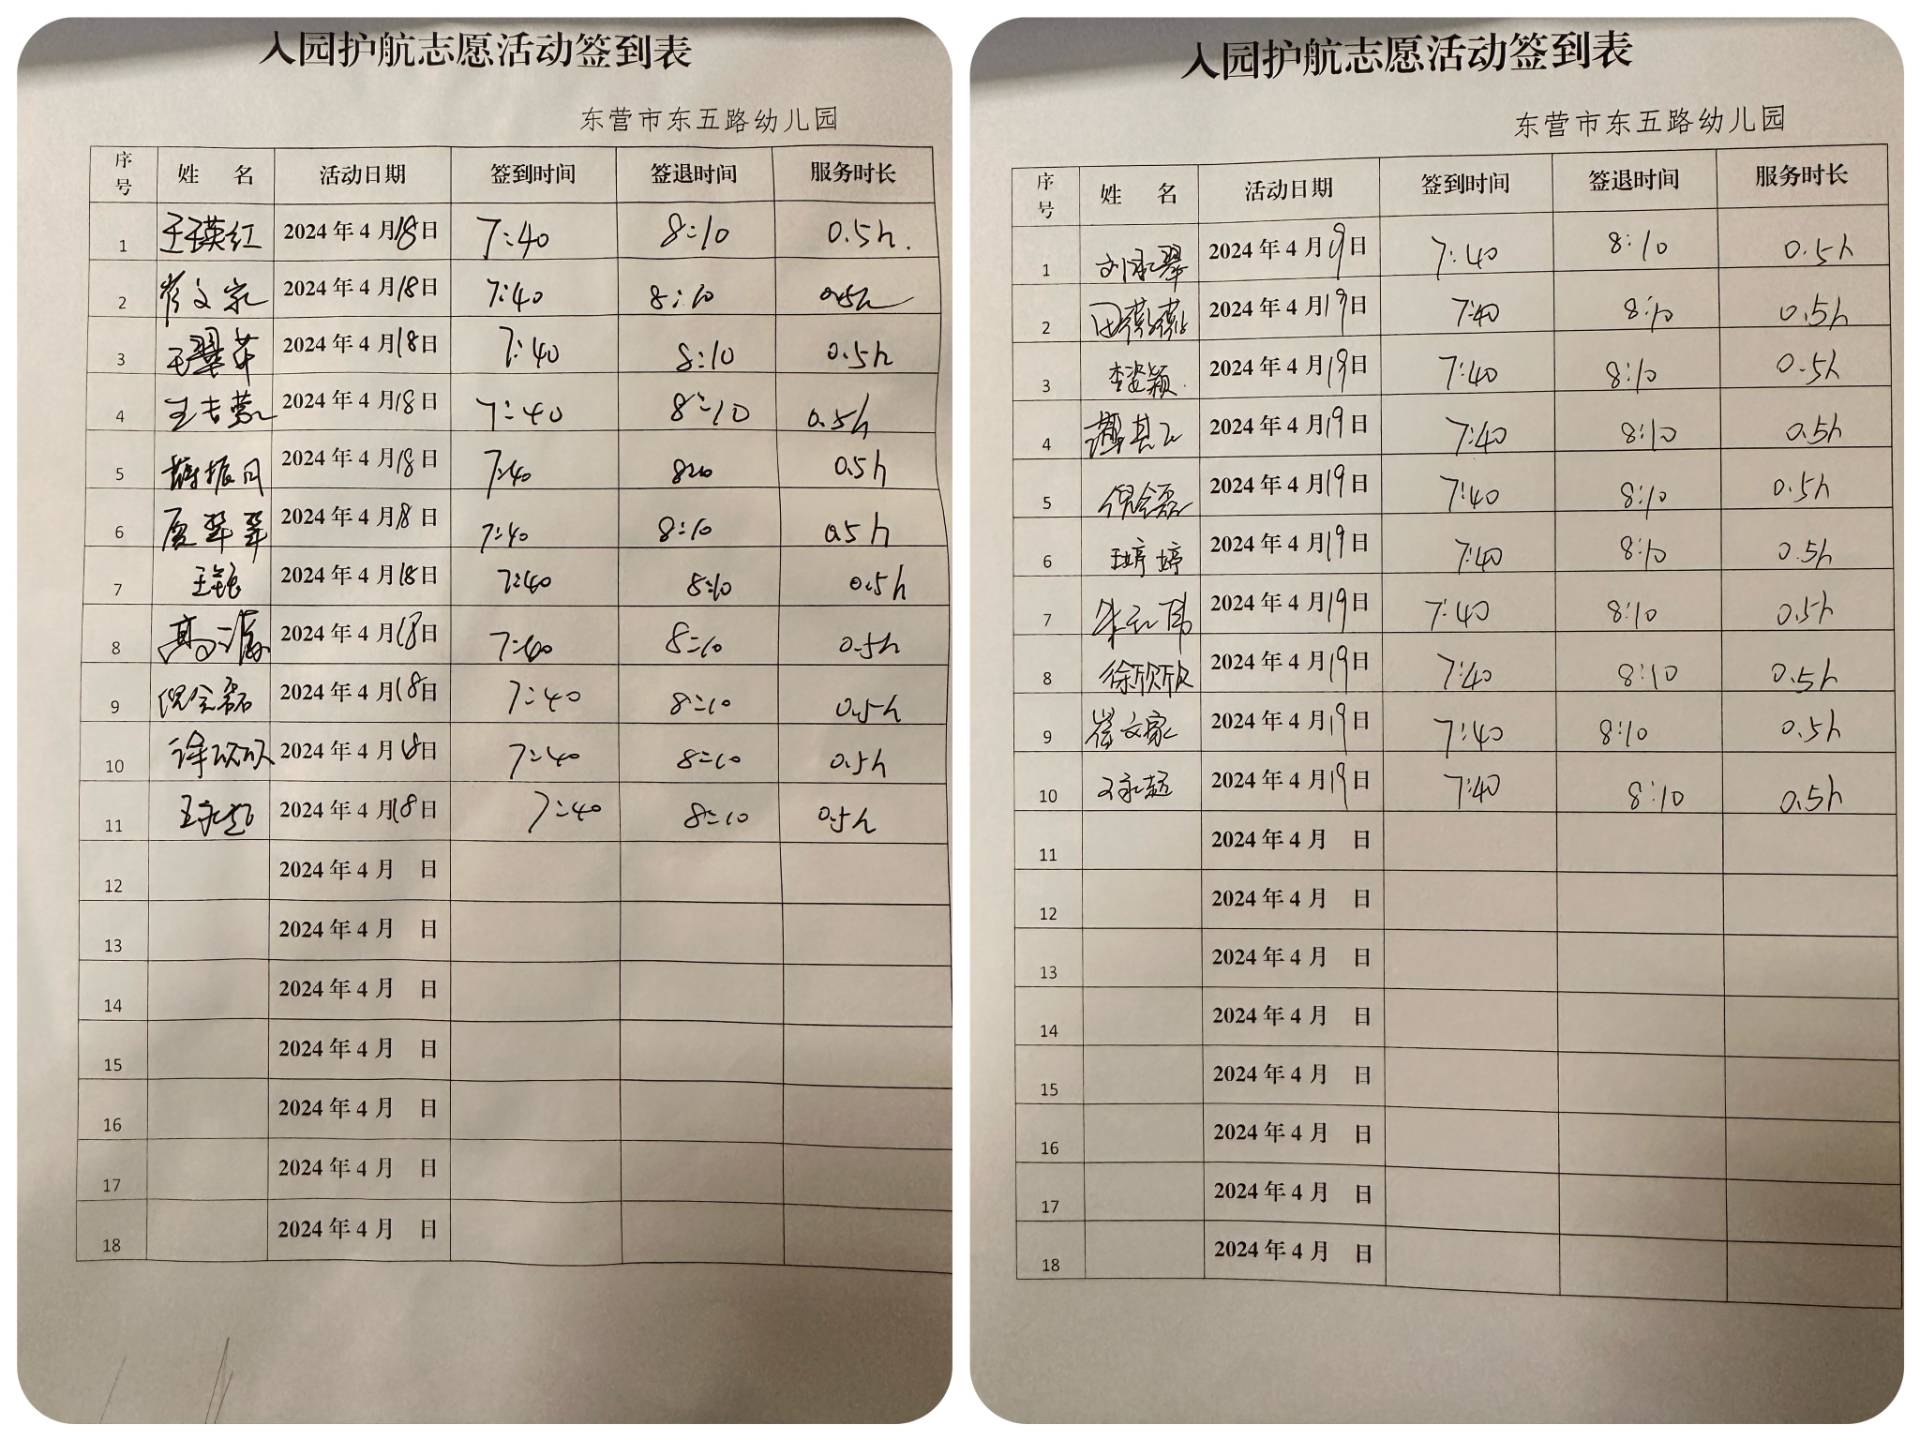 入园护航志愿活动签到表
东营市东五路幼儿园
序号 姓 名 活动日期 签到时间 签退时间 服务时长
1 王瑛红 2024年4月18日 7:40 8:10 0.5h.
2 崔文家 2024年4月18日 7:40 8:10 0.5h
3 王翠苹 2024年4月18日 7:40 8:10 0.5h
4 王吉 2024年4月18日 7:40 8:10 0.5h
5 振 2024年4月18日 7:40 8:10 0.5h
6 翠翠 2024年4月18日 7:40 8:10 0.5h
7 王 2024年4月18日 7:40 8:10 0.5h
8 高 2024年4月18日 7:40 8:10 0.5h
9 倪会磊 2024年4月18日 7:40 8:10 0.5h
10 徐欣欣 2024年4月18日 7:40 8:10 0.5h
11 王永超 2024年4月18日 7:40 8:10 0.5h
12 2024年4月 日
13 2024年4月 日
14 2024年4月 日
15 2024年4月 日
16 2024年4月 日
17 2024年4月 日
18 2024年4月 日
入园护航志愿活动签到表
东营市东五路幼儿园
序号 姓 名 活动日期 签到时间 签退时间 服务时长
1 刘永翠 2024年4月19日 7:40 8:10 0.5h
2 田燕燕 2024年4月19日 7:40 8:10 0.5h
3 李姿颖 2024年4月19日 7:40 8:10 0.5h
4 谭其 2024年4月19日 7:40 8:10 0.5h
5 倪会磊 2024年4月19日 7:40 8:10 0.5h
6 王婷婷 2024年4月19日 7:40 8:10 0.5h
7 朱 2024年4月19日 7:40 8:10 0.5h
8 徐欣欣 2024年4月19日 7:40 8:10 0.5h
9 崔文家 2024年4月19日 7:40 8:10 0.5h
10 王永超 2024年4月19日 7:40 8:10 0.5h
11 2024年4月 日
12 2024年4月 日
13 2024年4月 日
14 2024年4月 日
15 2024年4月 日
16 2024年4月 日
17 2024年4月 日
18 2024年4月 日